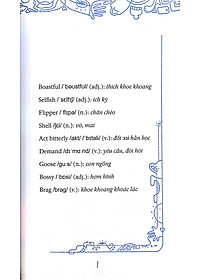 Boastful /ˈbəʊstfʊl/ (adj.): thích khoe khoang
Selfish /ˈsɛlfɪʃ/ (adj.): ích kỷ
Flipper /ˈflɪpə/ (n.): chân chèo
Shell /ʃɛl/ (n.): vỏ, mai
Act bitterly /ækt/ /ˈbɪtəli/ (v.): đối xử hằn học
Demand /dɪˈmɑːnd/ (v.): yêu cầu, đòi hỏi
Goose /guːs/ (n.): con ngỗng
Bossy /ˈbɒsi/ (adj.): hợm hĩnh
Brag /bræg/ (v.): khoe khoang khoác lác